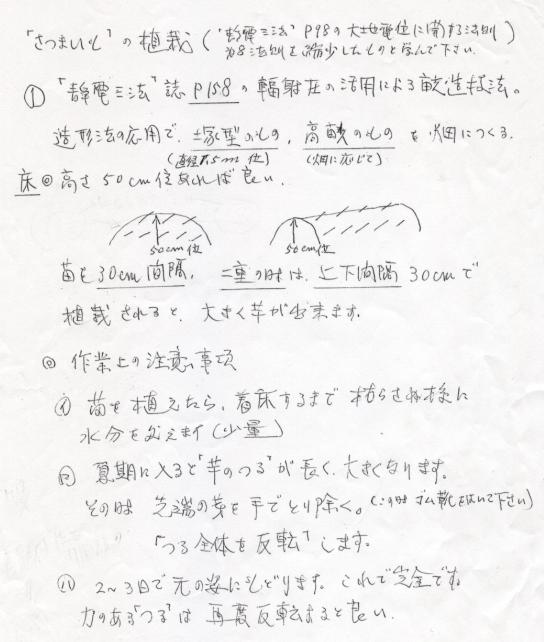 「さつまいも」の植栽(「静電三法」P98の大地電位に関する法則)
為8法則を縮少したものと学んで下さい。
① 「静電三法」誌 P158の輻射在の活用による畝造技法。
造形法の応用で、塚型のもの、高畝のもの を畑につくる。
(直径1.5m位) (畑に応じて)
床◎高さ50cm位あれば良い。
50cm位 50cm位
苗を30cm間隔、二重の時は、上下間隔30cmで
植栽されると、大きく芋が出来ます。
◎ 作業上の注意事項
㋑ 苗を植えたら、着床するまで枯らさぬ様に
水分を与えます(少量)
㋺ 夏期に入ると「芋のつる」が長く、大きくなります。
その時 先端の芽を手でとり除く。(この時ゴム靴をはいて下さい)
「つる全体を反転」します。
㋩ 2〜3日で元の姿にもどります。これで完全です。
力のある「つる」は再度反転すると良い。